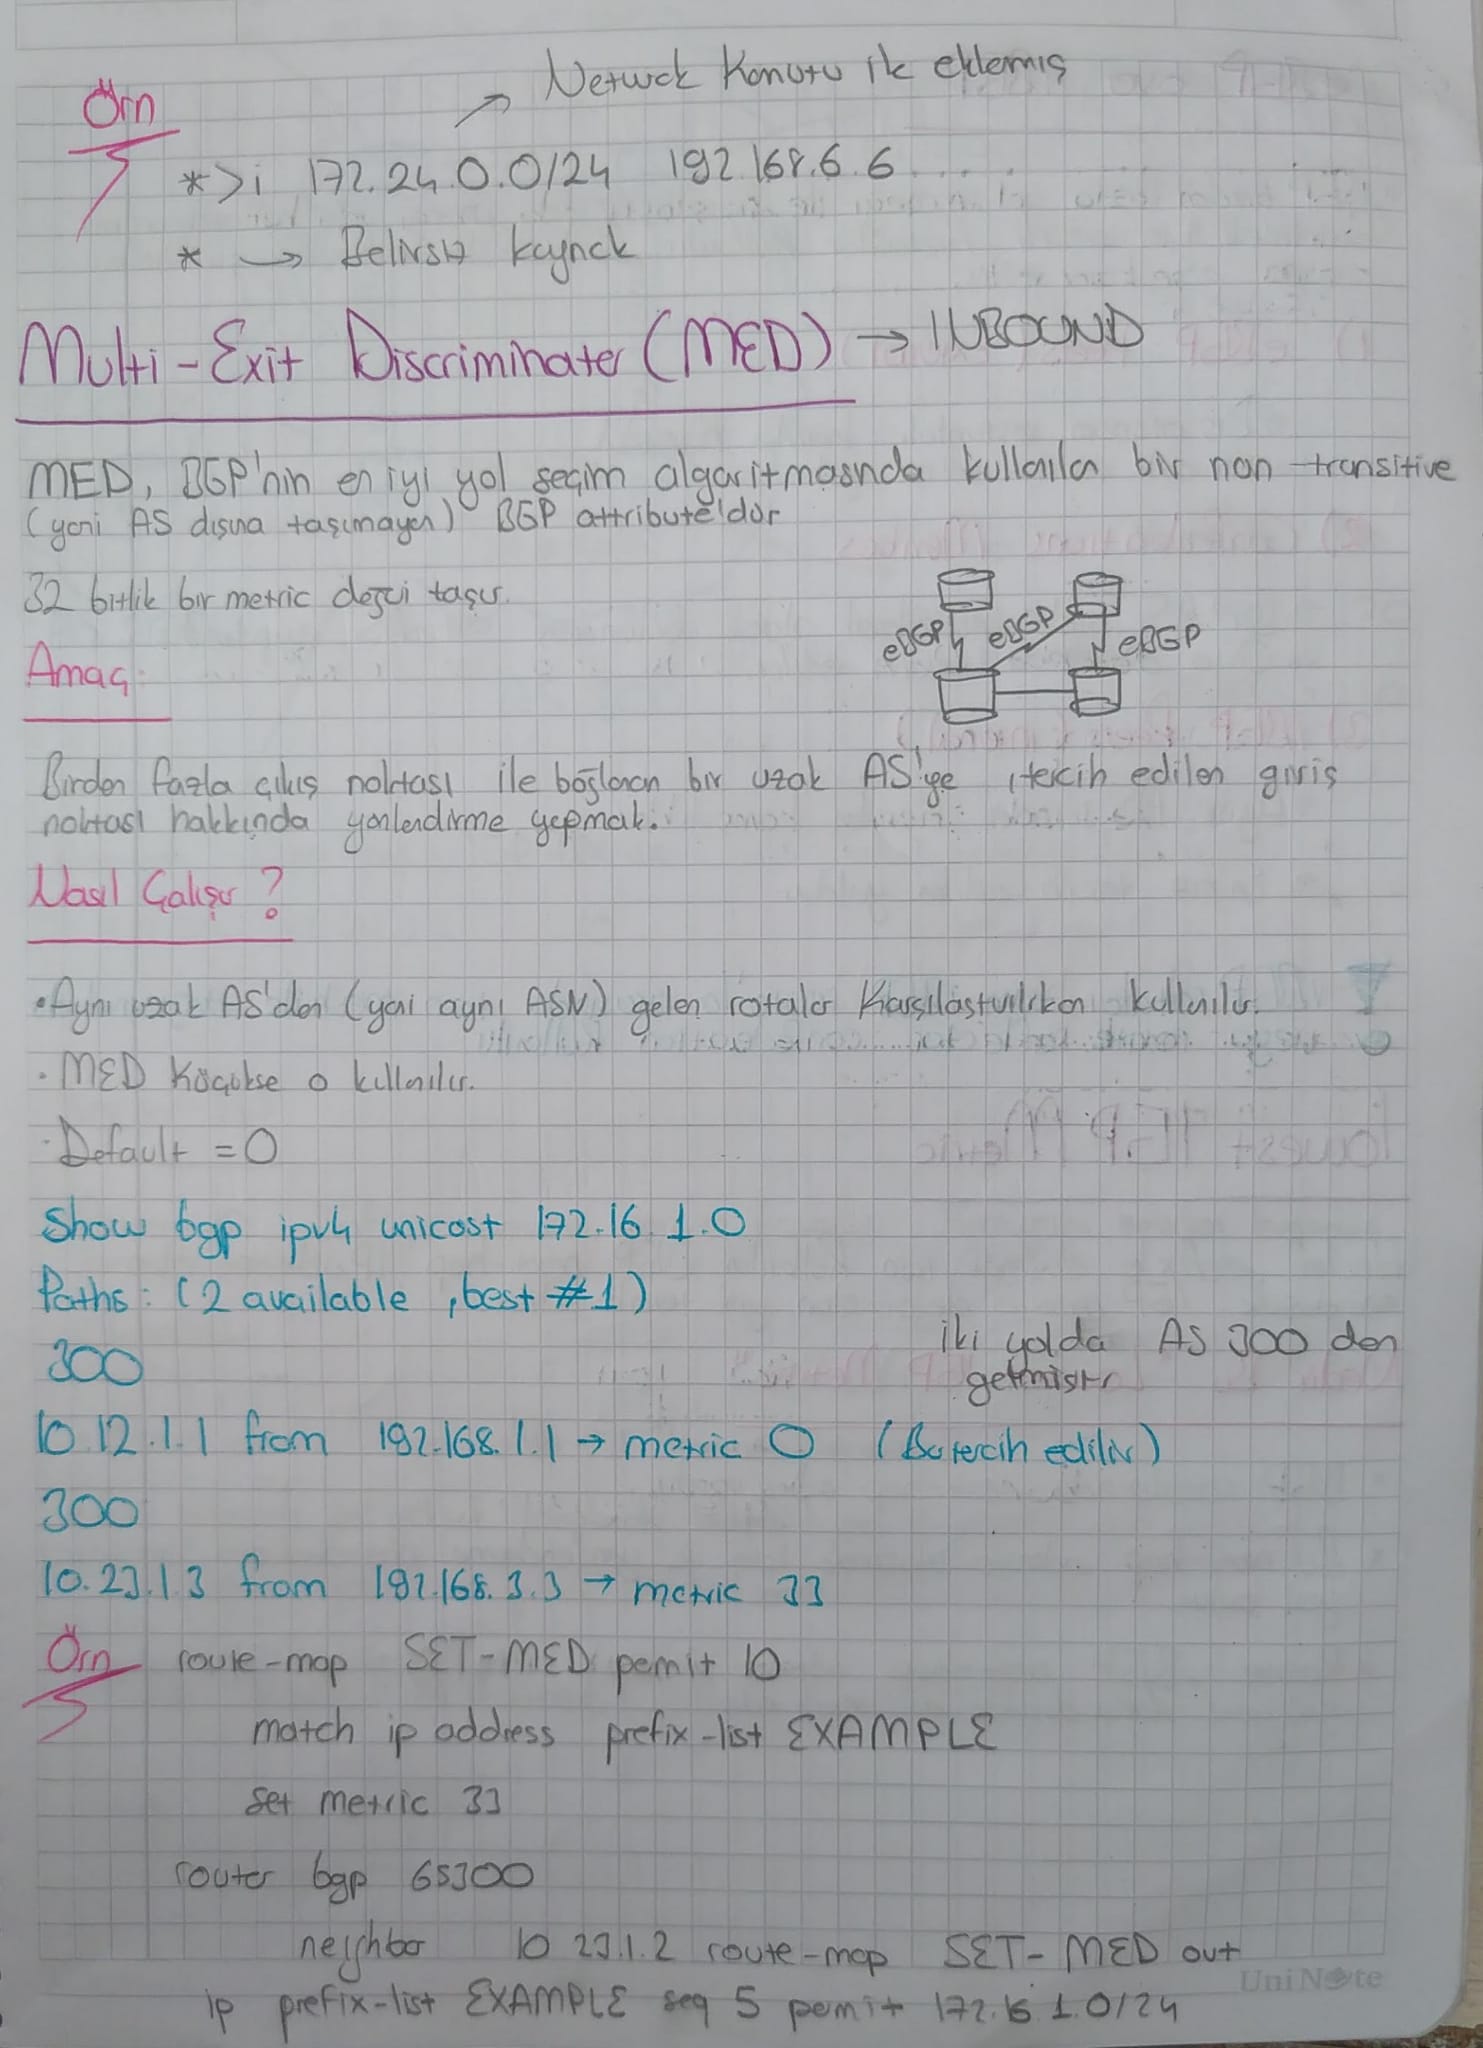 Örn
Network Komutu ile eklemiş
*>i 172.24.0.0/24 192.168.6.6 ....
* → Belirsiz kaynak
Multi-Exit Discriminater (MED) → INBOUND
MED, BGP'nin en iyi yol seçim algoritmasında kullanılan bir non-transitive
(yani AS dışına taşımayan) BGP attribute'dür
32 bitlik bir metric değeri taşır.
eBGP eBGP eBGP
Amaç:
Birden fazla çıkış noktası ile bağlanan bir uzak AS'ye, tercih edilen giriş
noktası hakkında yönlendirme yapmak.
Nasıl Çalışır?
• Aynı uzak AS'den (yani aynı ASN) gelen rotalar karşılaştırılırken kullanılır.
• MED Küçükse o kullanılır.
• Default = 0
Show bgp ipv4 unicast 172.16.1.0
Paths: (2 available, best #1)
300
iki yolda AS 300 den
gelmiştir
10.12.1.1 from 192.168.1.1 → metric 0 (Bu tercih edilir)
300
10.23.1.3 from 192.168.3.3 → metric 33
Örn
route-map SET-MED permit 10
match ip address prefix-list EXAMPLE
set metric 33
router bgp 65300
neighbor 10.23.1.2 route-map SET-MED out
ip prefix-list EXAMPLE seq 5 permit 172.16.1.0/24
UniNote